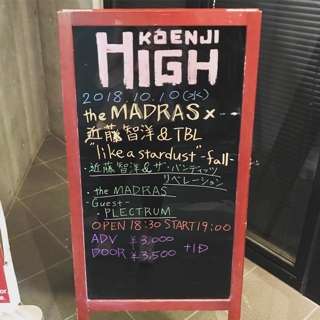 KOENJI
HIGH
2018.10.10(水)
the MADRAS x
近藤智洋&TBL
"like a stardust"-fall-
・近藤智洋&ザ・バンディッツ
リベレーション
・the MADRAS
-Guest-
・PLECTRUM
OPEN 18:30 START 19:00
ADV ¥3,000
DOOR ¥3,500 +1D